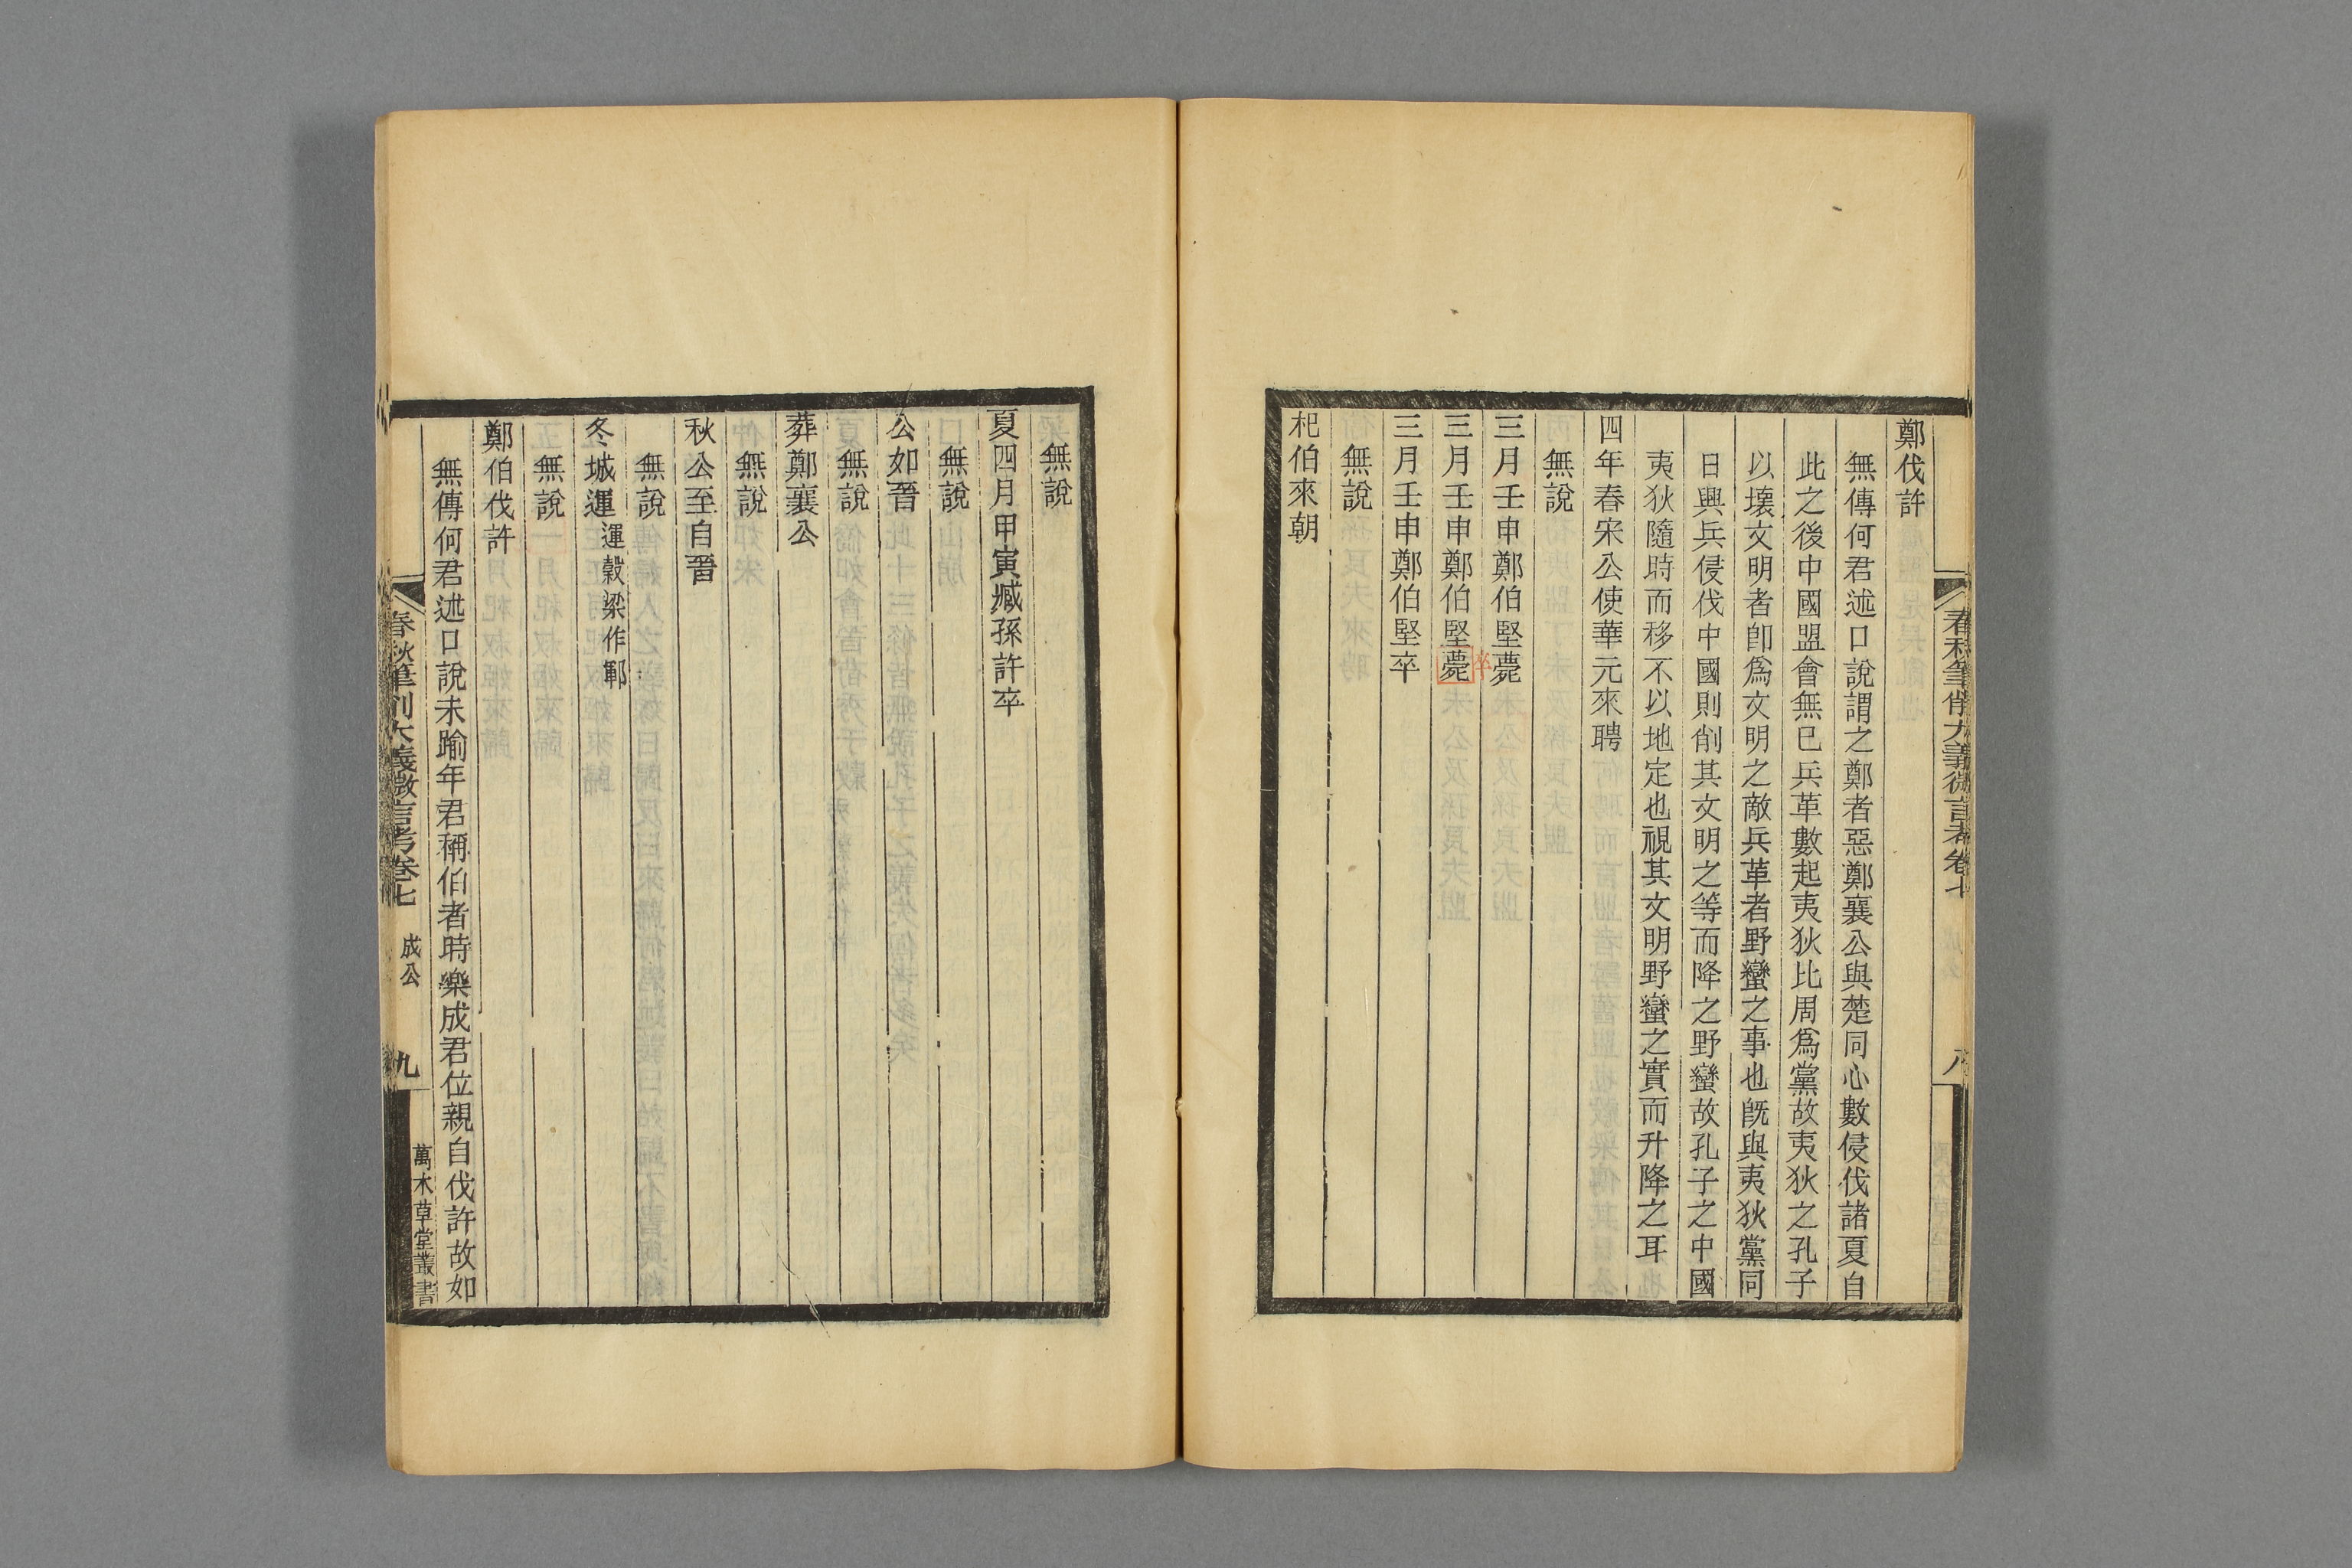 春秋筆削大義微言考卷七
八
鄭伐許
無傳何君述口說謂之鄭者惡鄭襄公與楚同心數侵伐諸夏自
此之後中國盟會無已兵革數起夷狄比周爲黨故夷狄之孔子
以壞文明者卽爲文明之敵兵革者野蠻之事也旣與夷狄黨同
日興兵侵伐中國則削其文明之等而降之野蠻故孔子之中國
夷狄隨時而移不以地定也視其文明野蠻之實而升降之耳
四年春宋公使華元來聘
無說
三月壬申鄭伯堅薨
卒
三月壬申鄭伯堅薨
三月壬申鄭伯堅卒
無說
杞伯來朝
無說
夏四月甲寅臧孫許卒
無說
公如晉
無說
葬鄭襄公
無說
秋公至自晉
無說
冬城運運穀梁作鄆
無說
鄭伯伐許
無傳何君述口說未踰年君稱伯者時樂成君位親自伐許故如
春秋筆削大義微言考卷七 成公 九 萬木草堂叢書